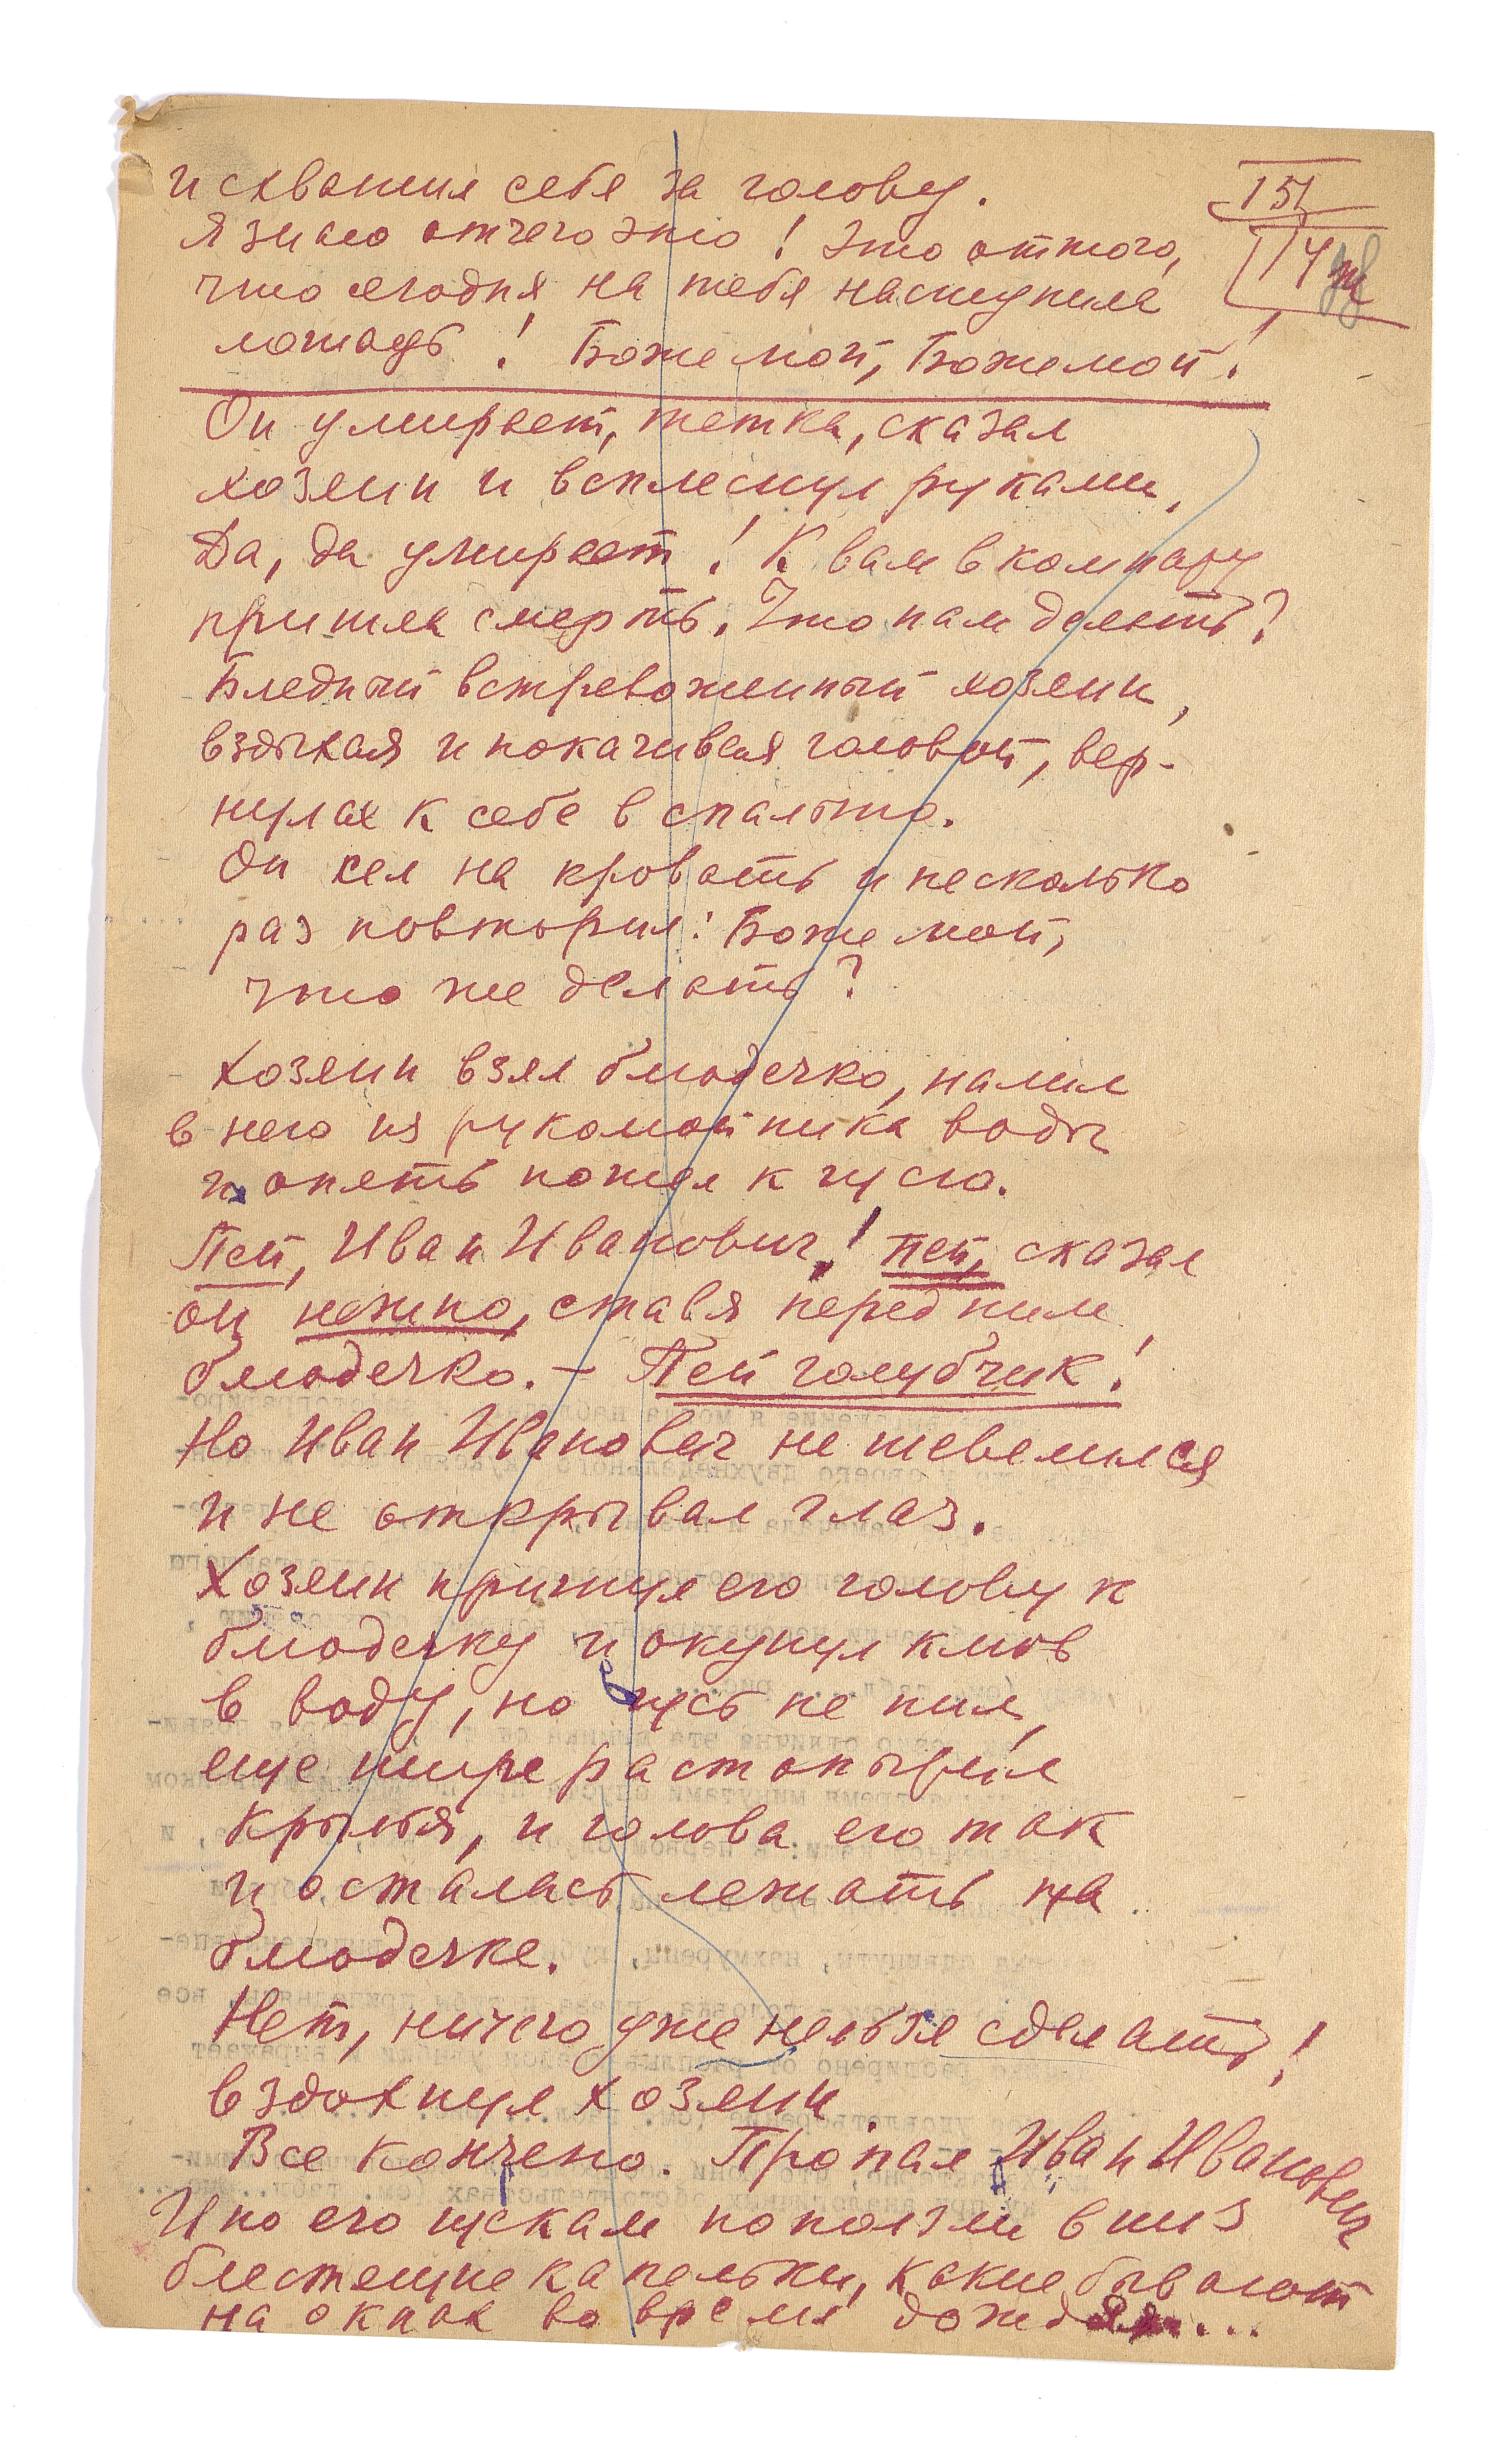 и схватил себя за голову.
151
Я знаю отчего это! Это оттого,
14
что сегодня на тебя наступила
лошадь! Боже мой, Боже мой!
Он умирает, тетка, сказал
хозяин и всплеснул руками,
Да, да умирает! К вам в комнату
пришла смерть. Что нам делать?
Бледный встревоженный хозяин,
вздыхая и покачивая головой, вер-
нулся к себе в спальню.
Он сел на кровать и несколько
раз повторил: Боже мой,
что же делать?
Хозяин взял блюдечко, налил
в него из рукомойника воды
и опять пошел к гусю.
Пей, Иван Иванович! пей, сказал
он нежно, ставя перед ним
блюдечко. – Пей голубчик!
Но Иван Иванович не шевелился
и не открывал глаз.
Хозяин пригнул его голову к
блюдечку и окунул клюв
в воду, но гусь не пил,
еще шире растопырил
крылья, и голова его так
и осталась лежать на
блюдечке.
Нет, ничего уже нельзя сделать!
вздохнул хозяин.
Все кончено. Пропал Иван Иванович
И по его щекам поползли вниз
блестящие капельки, какие бывают
на окнах во время дождя...